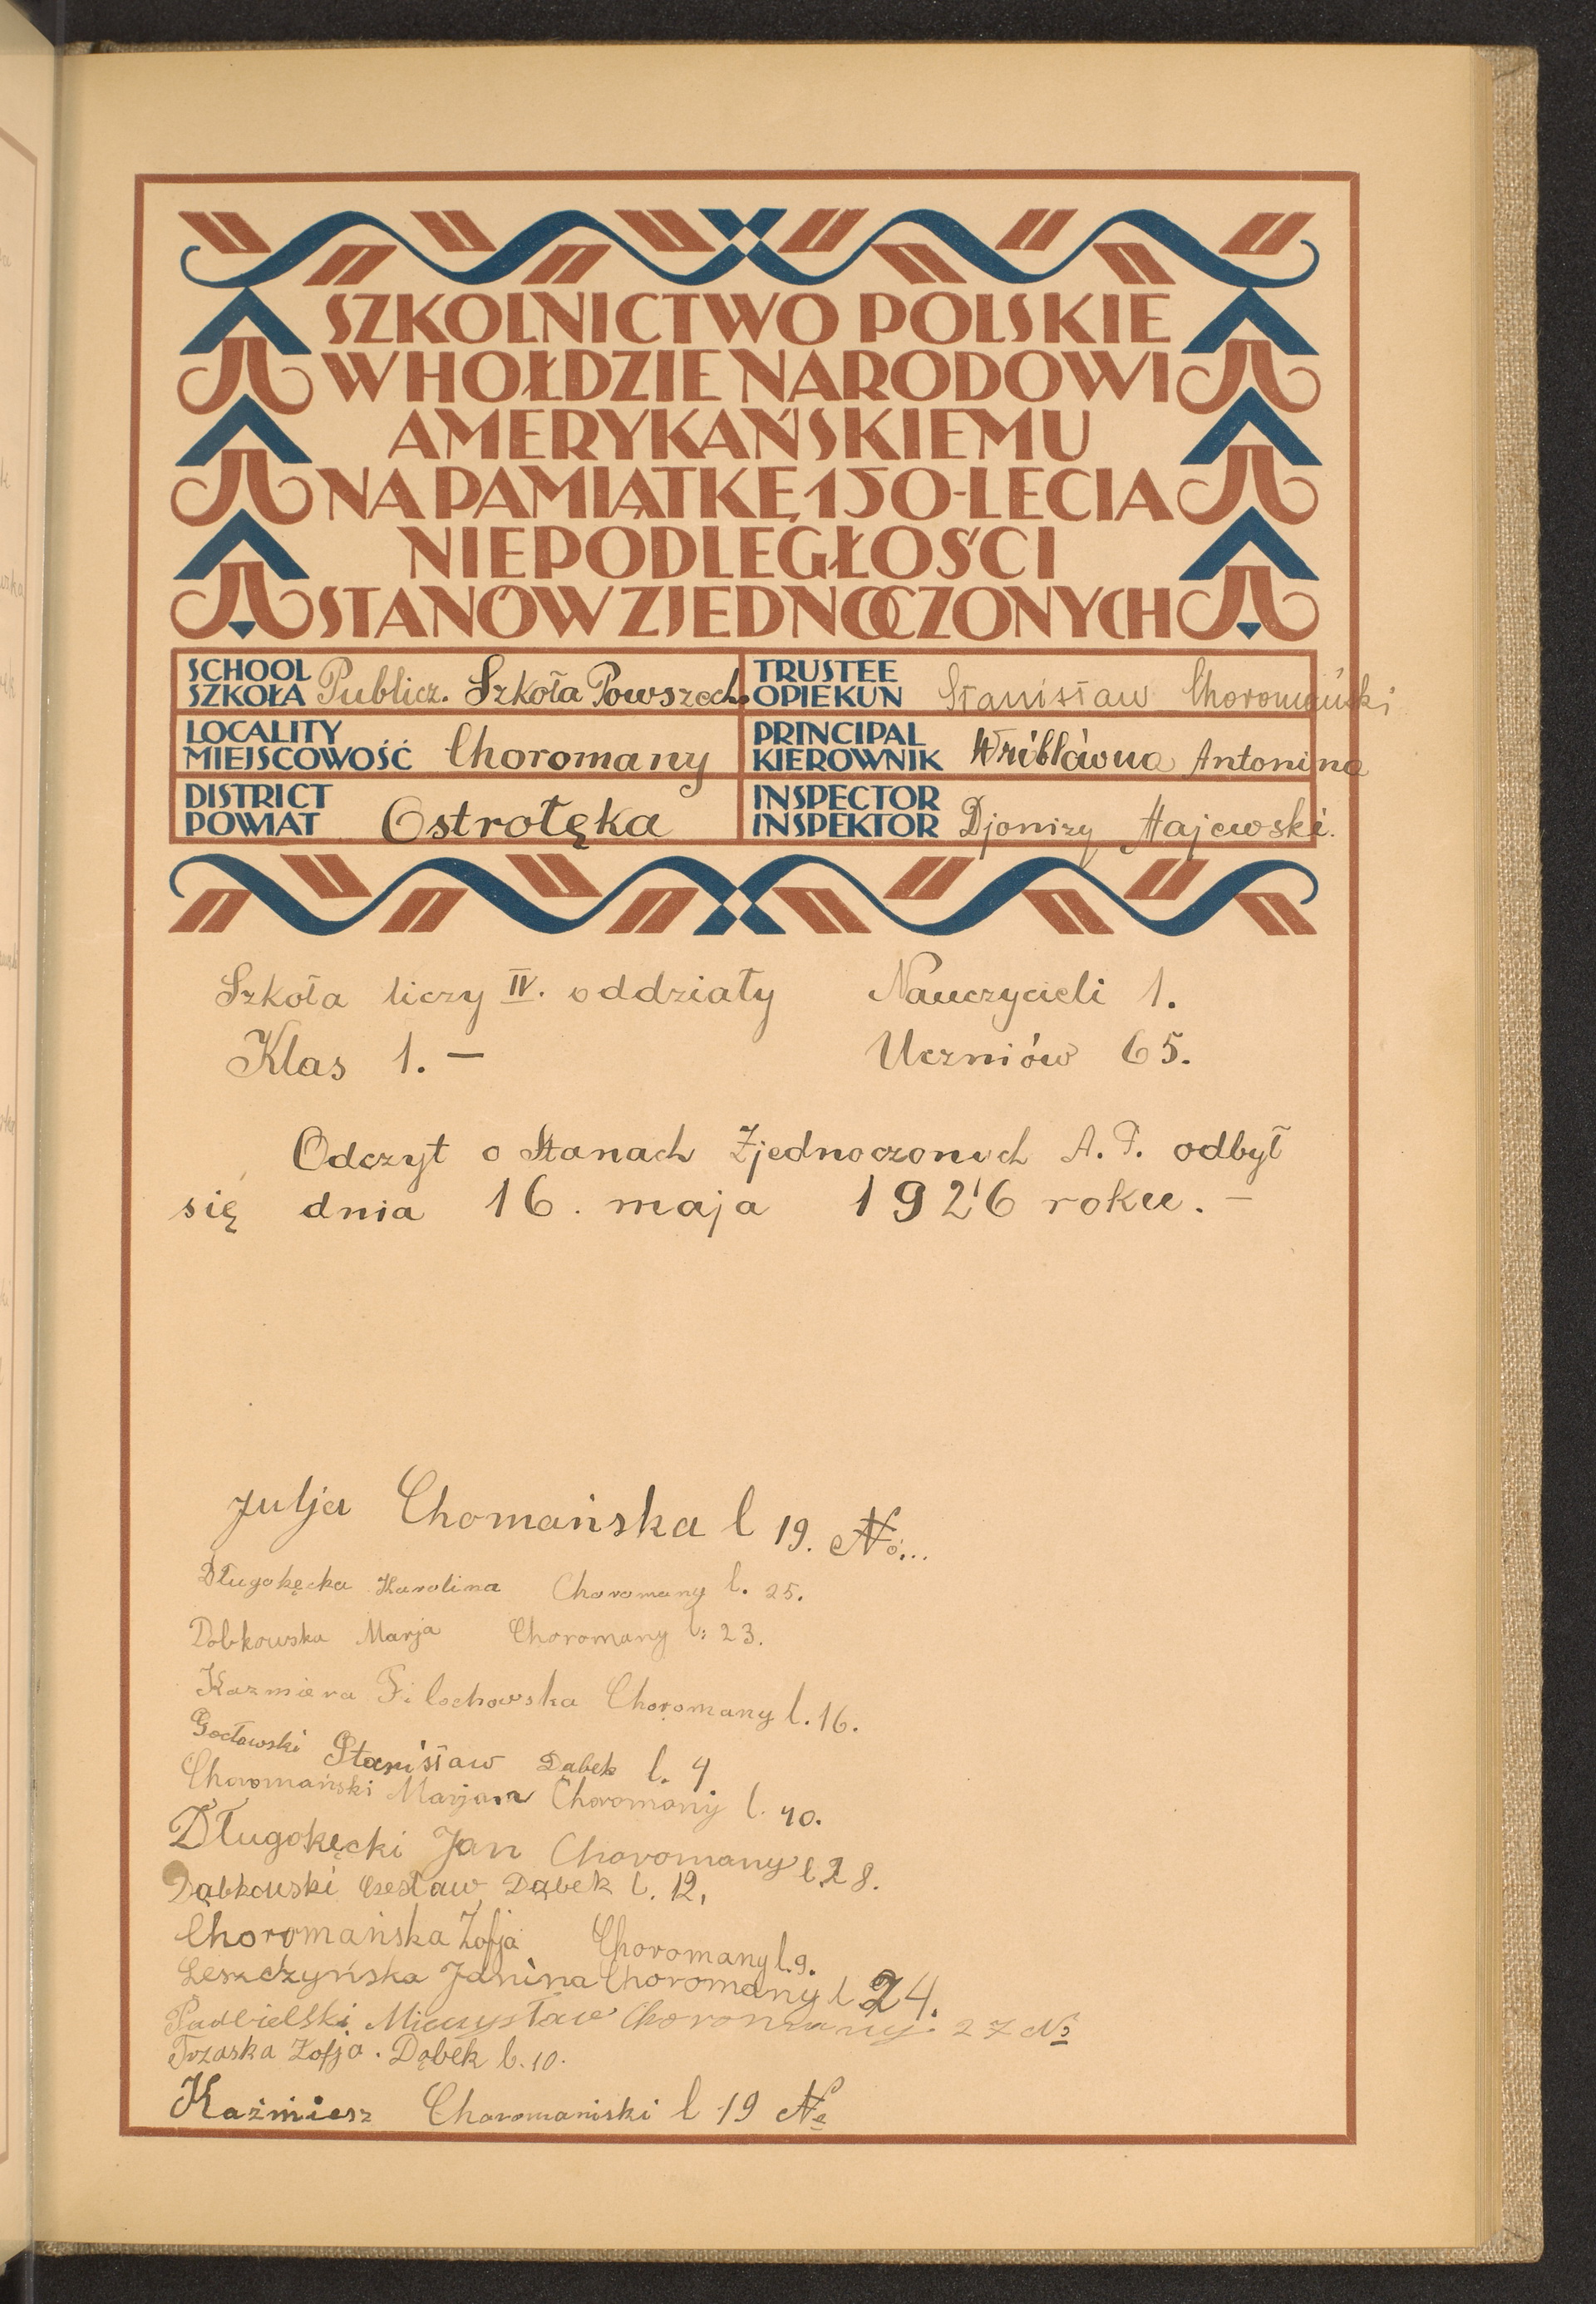 SZKOLNICTWO POLSKIE
W HOŁDZIE NARODOWI
AMERYKAŃSKIEMU
NA PAMIĄTKĘ 150-LECIA
NIEPODLEGŁOŚCI
STANÓW ZJEDNOCZONYCH
SCHOOL
SZKOŁA Publicz. Szkoła Powszech.
TRUSTEE
OPIEKUN Stanisław Choromański
LOCALITY
MIEJSCOWOŚĆ Choromany
PRINCIPAL
KIEROWNIK Wróblówna Antonina
DISTRICT
POWIAT Ostrołęka
INSPECTOR
INSPEKTOR Djonizy Hajewski.
Szkoła liczy IV. oddziały Nauczycieli 1.
Klas 1. — Uczniów 65.
Odczyt o Stanach Zjednoczonych A. P. odbył
się dnia 16. maja 1926 roku. —
Julja Chomańska l 19. No...
Długokęcka Karolina Choromany l. 25.
Dobkowska Marja Choromany l: 23.
Kazmiera Filochowska Choromany l. 16.
Gocłowski Stanisław Dąbek l. 4.
Choromański Marjan Choromany l. 40.
Długokęcki Jan Choromany l 28.
Dąbkowski Czesław Dąbek l. 12.
Choromańska Zofja Choromany l. 9.
Leszczyńska Janina Choromany l 24.
Podbielski Mieczysław Choromany. 27 No
Trzaska Zofja. Dąbek l. 10.
Kaźmierz Choromański l 19 No